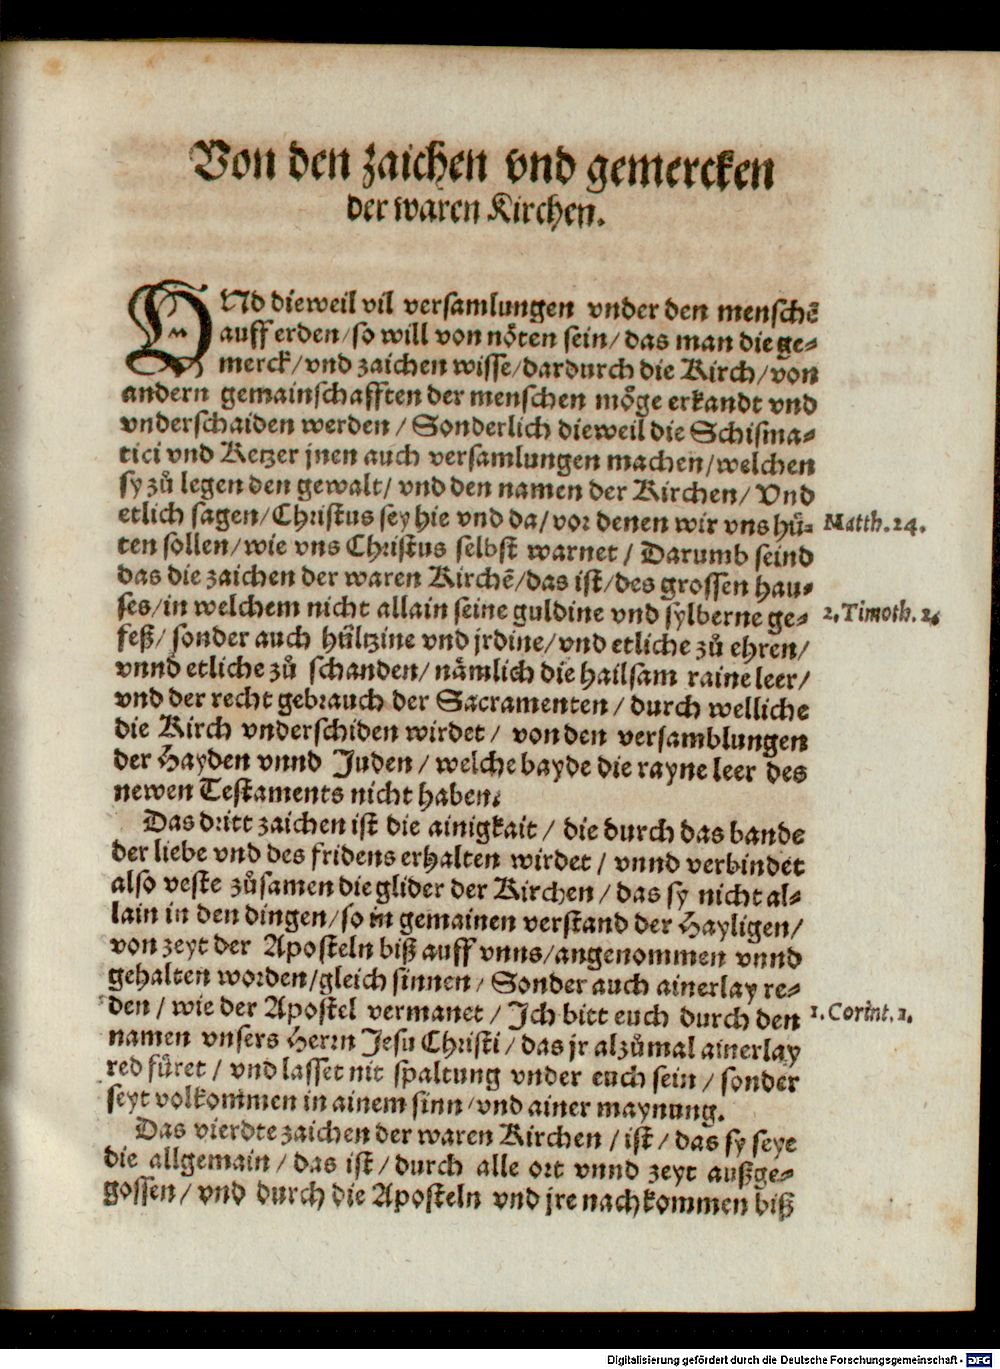 Von den zaichen vnd gemercken
der waren Kirchen.
VNd dieweil vil versamlungen vnder den menschẽ
auff erden/ so will von nöten sein/ das man die ge⸗
merck/ vnd zaichen wisse/ dardurch die Kirch/ von
andern gemainschafften der menschen möge erkandt vnd
vnderschaiden werden/ Sonderlich dieweil die Schisma⸗
tici vnd Ketzer jnen auch versamlungen machen/ welchen
sy zů legen den gewalt/ vnd den namen der Kirchen/ Vnd
etlich sagen/ Christus sey hie vnd da/ vor denen wir vns hů⸗
Matth. 24.
ten sollen/ wie vns Christus selbst warnet/ Darumb seind
das die zaichen der waren Kirchẽ/ das ist/ des grossen hau⸗
ses/ in welchem nicht allain seine guldine vnd sylberne ge⸗
2. Timoth. 2.
feß/ sonder auch hůltzine vnd jrdine/ vnd etliche zů ehren/
vnnd etliche zů schanden/ nämlich die hailsam raine leer/
vnd der recht gebrauch der Sacramenten/ durch welliche
die Kirch vnderschiden wirdet/ von den versamblungen
der Hayden vnnd Juden/ welche bayde die rayne leer des
newen Testaments nicht haben.
Das dritt zaichen ist die ainigkait/ die durch das bande
der liebe vnd des fridens erhalten wirdet/ vnnd verbindet
also veste zůsamen die glider der Kirchen/ das sy nicht al⸗
lain in den dingen/ so in gemainen verstand der Hayligen/
von zeyt der Aposteln biß auff vnns/ angenommen vnnd
gehalten worden/ gleich sinnen/ Sonder auch ainerlay re⸗
den/ wie der Apostel vermanet/ Ich bitt euch durch den
1. Corint. 1.
namen vnsers Herrn Jesu Christi/ das jr alzůmal ainerlay
red fůret/ vnd lasset nit spaltung vnder euch sein/ sonder
seyt volkommen in ainem sinn/ vnd ainer maynung.
Das vierdte zaichen der waren Kirchen/ ist/ das sy seye
die allgemain/ das ist/ durch alle ort vnnd zeyt außge⸗
gossen/ vnd durch die Aposteln vnd jre nachkommen biß
Digitalisierung gefördert durch die Deutsche Forschungsgemeinschaft - DFG